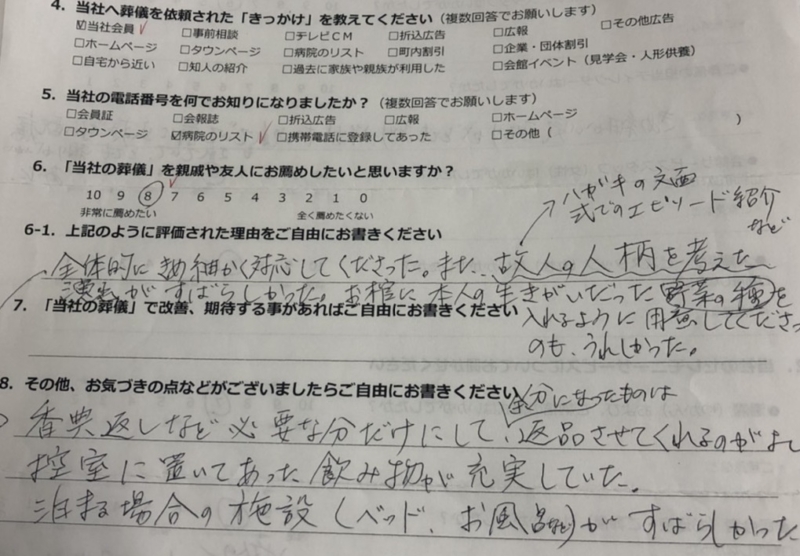 4. 当社へ葬儀を依頼された「きっかけ」を教えてください（複数回答でお願いします）
☑当社会員 □事前相談 □テレビＣＭ □折込広告 □広報 □その他広告
□ホームページ □タウンページ □病院のリスト □町内割引 □企業・団体割引
□自宅から近い □知人の紹介 □過去に家族や親族が利用した □会館イベント（見学会・人形供養）
5. 当社の電話番号を何でお知りになりましたか？（複数回答でお願いします）
□会員証 □会報誌 □折込広告 □広報 □ホームページ
□タウンページ ☑病院のリスト □携帯電話に登録してあった □その他（ ）
6. 「当社の葬儀」を親戚や友人にお薦めしたいと思いますか？
10 9 8 7 6 5 4 3 2 1 0
非常に薦めたい 全く薦めたくない
→ハガキの文面
式でのエピソード紹介
など
6-1. 上記のように評価された理由をご自由にお書きください
全体的にきめ細かく対応してくださった。また、故人の人柄を考えた
演出がすばらしかった。お棺に本人の生きがいだった野菜の種を
入れるように用意してくださった
のも、うれしかった。
7. 「当社の葬儀」で改善、期待する事があればご自由にお書きください
8. その他、お気づきの点などがございましたらご自由にお書きください
余分になったものは
香典返しなど必要な分だけにして、返品させてくれるのがよい
控室に置いてあった飲み物が充実していた。
泊まる場合の施設（ベッド、お風呂など）がすばらしかった